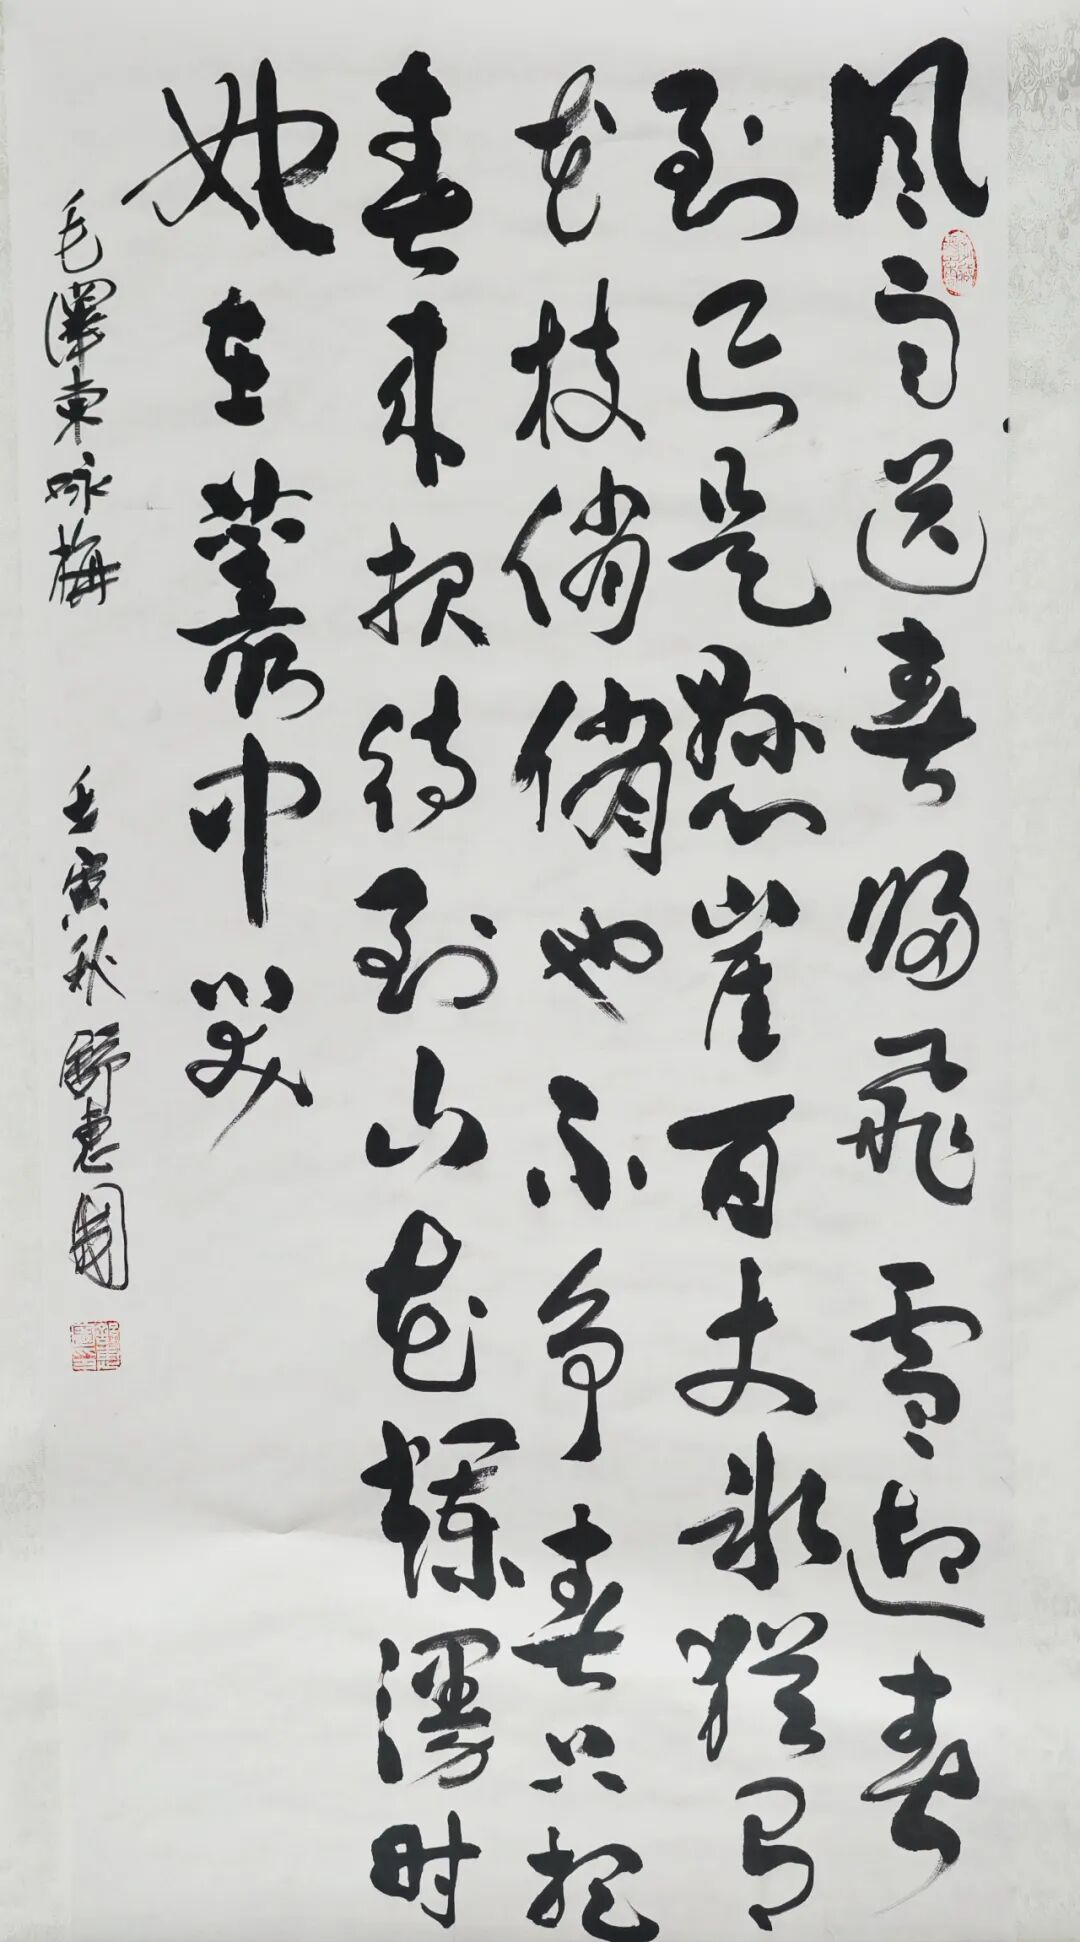 风雨送春归飞雪迎春
到已是懸崖百丈冰猶有
花枝俏俏也不争春只把
春来报待到山花爛漫时
她在叢中笑
毛澤東咏梅 壬寅秋 舒惠國